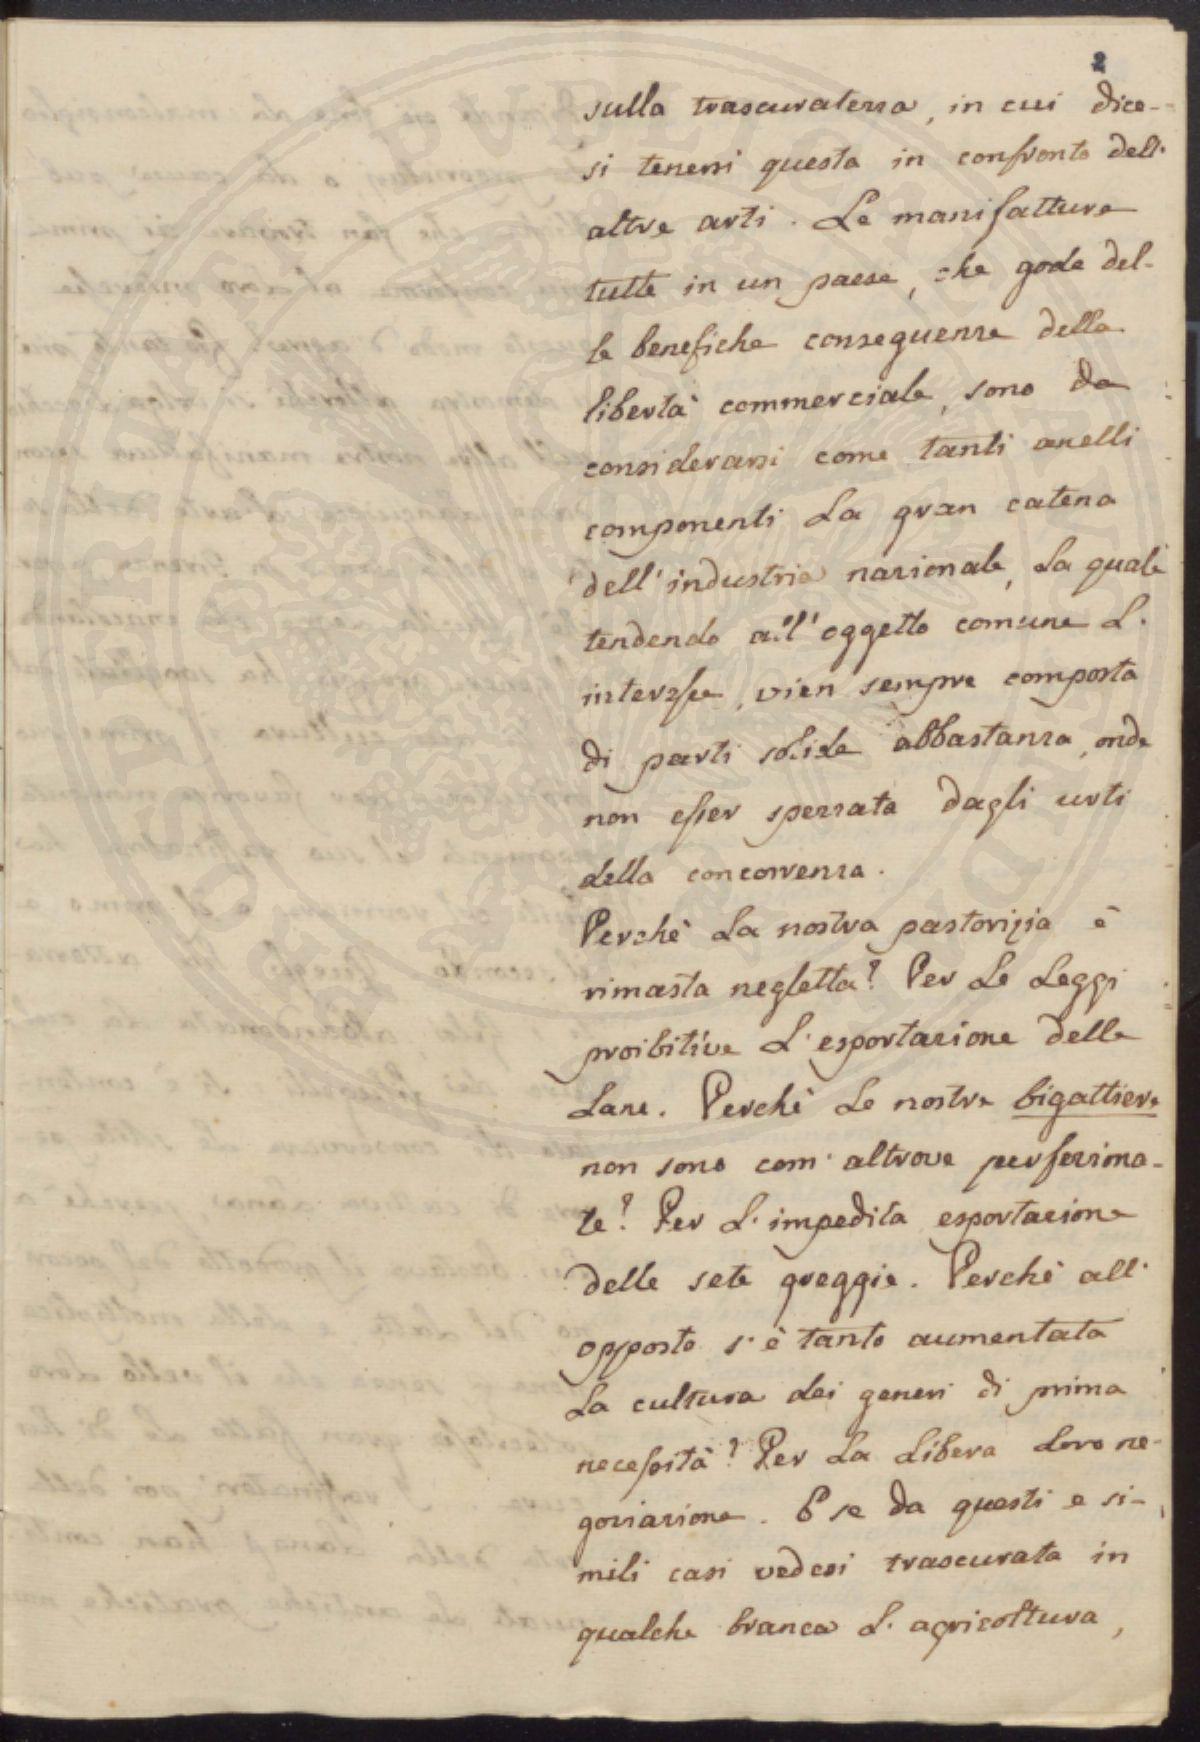 2
sulla trascuratezza, in cui dice-
si tenersi questa in confronto dell'
altre arti. Le manifatture
tutte in un paese, che gode del-
le benefiche conseguenze della
libertà commerciale, sono da
considerarsi come tanti anelli
componenti la gran catena
dell'industria nazionale, la quale
tendendo all'oggetto comune l'
interesse, vien sempre composta
di parti solide abbastanza, onde
non esser spezzata dagli urti
della concorrenza.
Perchè la nostra pastorizia è
rimasta negletta? Per le leggi
proibitive l'esportazione delle
lane. Perchè le nostre bigattiere
non sono com' altrove perfeziona-
te? Per l'impedita esportazione
delle sete greggie. Perchè all'
opposto s'è tanto aumentata
la cultura dei generi di prima
necessità? Per la libera loro ne-
goziazione. E se da questi e si-
mili casi vedesi trascurata in
qualche branca l'agricoltura,